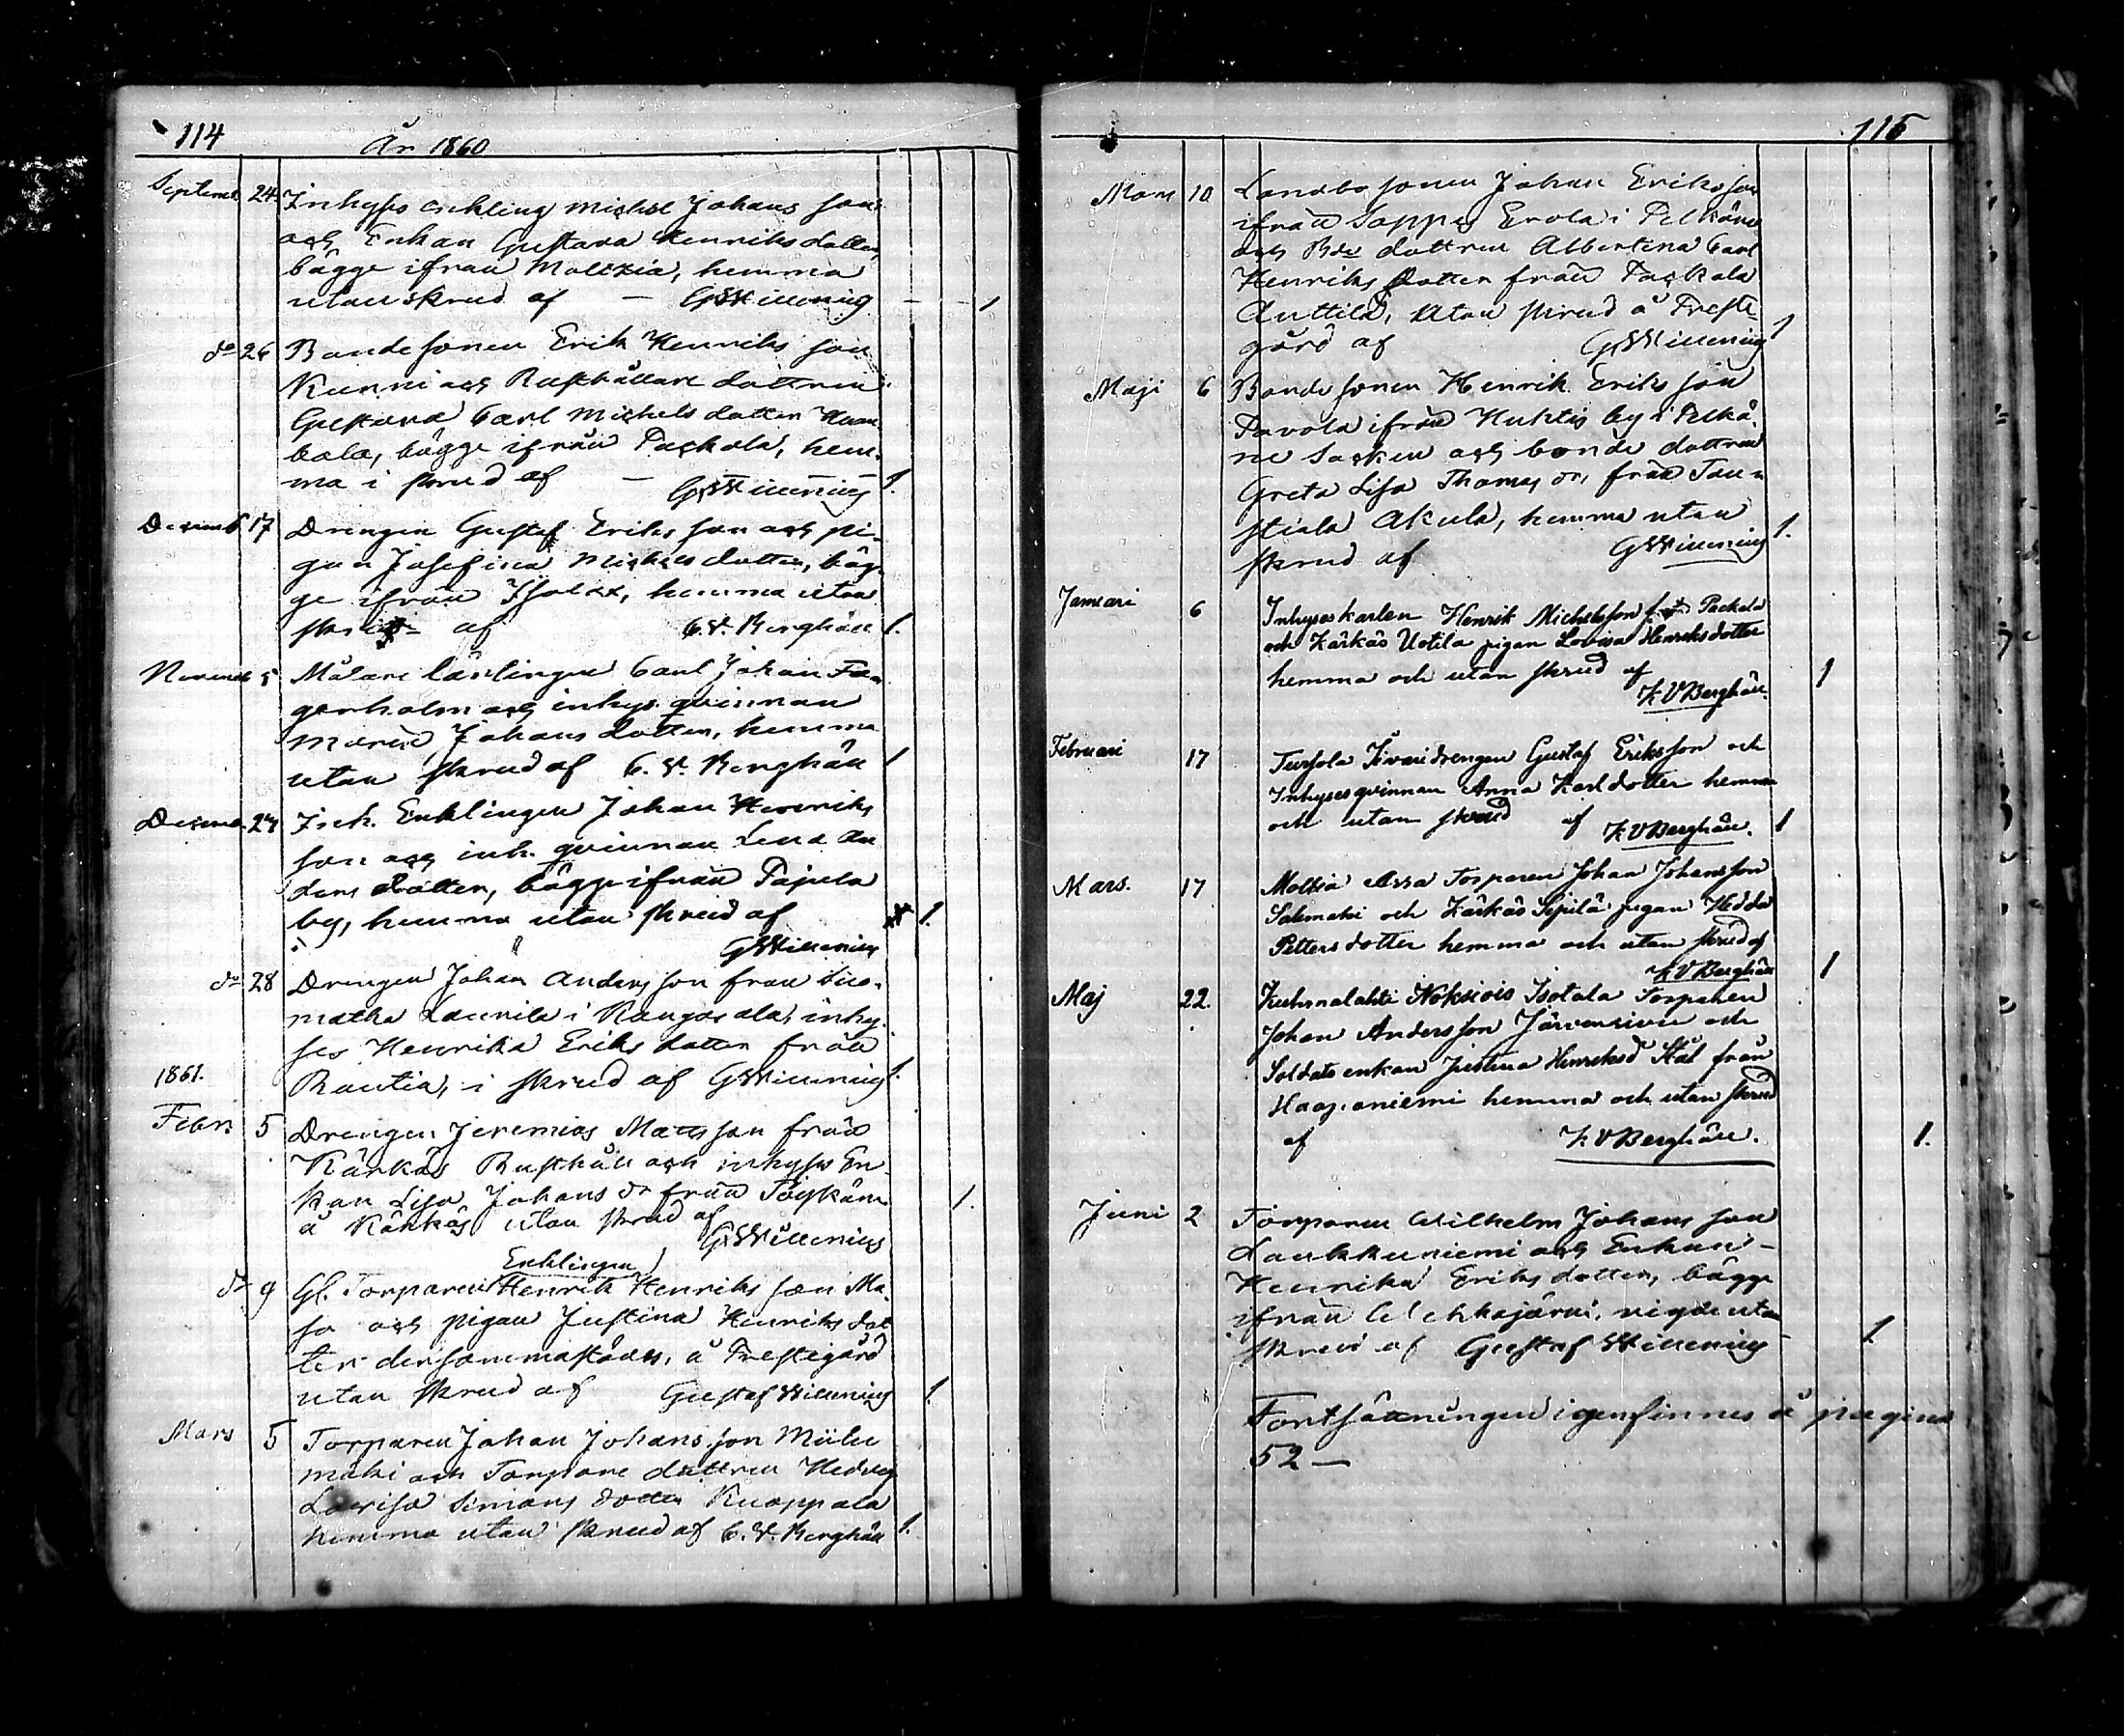 114
År 1860
Septemb. 24. Inhyses enkling Michel Johans son
och Enkan Gustava Henriksdotter,
bägge ifrån Moltzia, hemma
utan skrud af — GWillenius — 1
do 26 Bonde sonen Erik Henriks son
Kunni och Rusthållare dottren
Gustava Carl Michels dotter
bala, bägge ifrån Packola, hem-
ma i skrud af — GWillenius 1.
Decemb. 17 Drengen Gustaf Eriks son och pi-
gan Josefina Michels dotter, bäg-
ge ifrån, hemma utan
skrud af C. V. Berghäll 1.
Novemb. 5 Målare lärlingen Carl Johan Fa-
gerholm och inhys. qvinnan
Maria Johans dotter, hemma
utan skrud af C. V. Berghäll 1
Decemb. 27 Inh. Enklingen Johan Henriks
son och inh. qvinnan Lena An
ders dotter, bägge ifrån Pajula
by, hemma utan skrud af 1.
GWillenius
do 28 Drengen Johan Anders son från Suo-
matka Laurila i Kangasala, inhy-
ses Henrika Eriks dotter från
1861.
Rautia, i skrud af GWillenius 1.
Febr. 5 Drengen Jeremias Matts son från
Kärkäs Rusthåll och inhyses En-
kan Lisa Johans dr från 1.
å Kärkäs utan skrud af
GWillenius
Enklingen
do 9 Gl. Torparen Henrik Henriks son Ma-
so och pigan Justina Henriks dot
ter dersammastädes, å Prestegård
utan skrud af Gustaf Willenius 1.
Mars 5 Torparen Johan Johans son
mäki och Torpare dottren Hedvig
Lovisa Simons dotter Knoppala
hemma utan skrud af C. V. Berghäll 1.
115
Mars 10 Landbo sonen Johan Eriks son
ifrån Sappe Erola i Pelkäne
och Bde dottren Albertina Carl
Henriks dotter från Packola
Anttila, utan skrud å Preste-
gård af GWillenius 1
Maji 6 Bonde sonen Henrik Eriks son
Pavola ifrån Huktis by i Pelkä-
ne Socken och bonde dottren
Greta Lisa Thomas dr, från Tau-
stiala Akula, hemma utan
skrud af GWillenius 1.
Januari 6 Inhyseskarlen Henrik Michelsson från Packola
och Kärkäs Uotila pigan Lovisa Henriksdotter
hemma och utan skrud af 1
K V Berghäll.
Februari 17 Tursola drengen Gustaf Eriksson och
Inhysesqvinnan Anna Karldotter hemma
och utan skrud af K V Berghäll. 1
Mars. 17 Moltzia Assa Torparen Johan Johansson
Salmaki och Kärkäs Sipilä pigan Hedda
Petters dotter hemma och utan skrud af
K V Berghäll 1
Maj 22. Kuhmalahti Isotala Torparen
Johan Andersson Järvensivu och
Soldats enkan Justina Henriksdr Stål från
Haapaniemi hemma och utan skrud
af K V Berghäll. 1.
Juni 2 Torparen Wilhelm Johans son
Laukkuniemi och Enkan —
Henrika Eriks dotter, bägge
ifrån Vehkajärvi, vigde utan
skrud af Gustaf Willenius 1
Fortsättningen igenfinnes å pagina
52 —